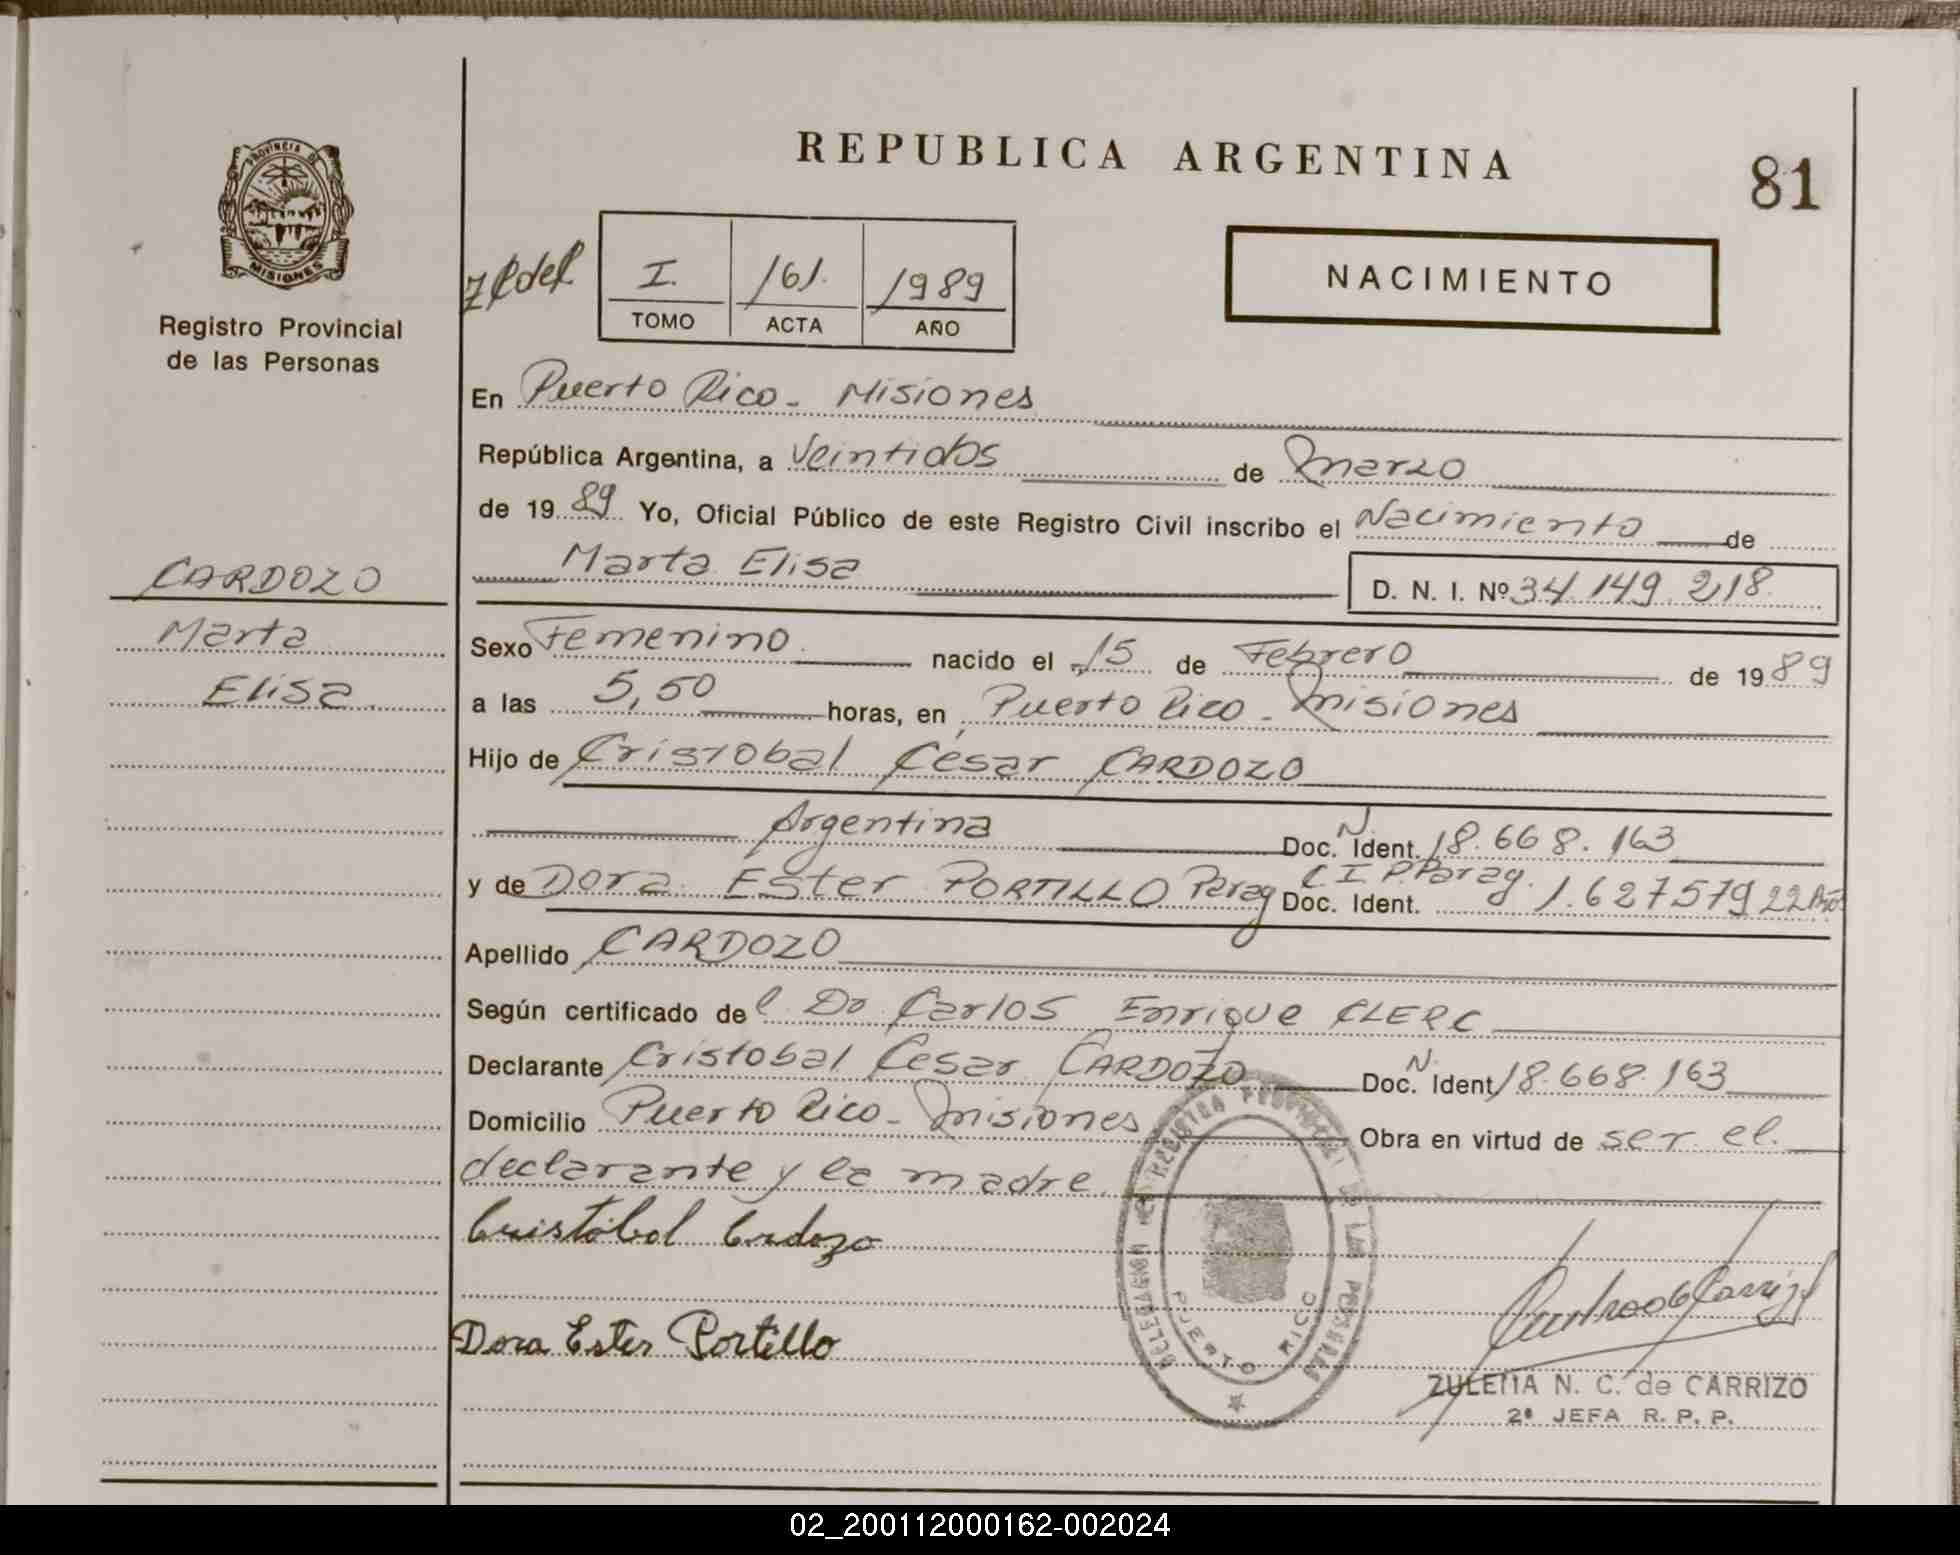 REPUBLICA ARGENTINA
81
PROVINCIA DE
MISIONES
Registro Provincial
de las Personas
I. 161. 1989
TOMO ACTA AÑO
NACIMIENTO
En Puerto Rico - Misiones
República Argentina, a Veintidos de Marzo
de 1989 Yo, Oficial Público de este Registro Civil inscribo el Nacimiento de
Marta Elisa
D. N. I. Nº 34.149.218
CARDOZO
Marta
Elisa
Sexo Femenino nacido el 15 de Febrero de 1989
a las 5,50 horas, en Puerto Rico - Misiones
Hijo de Cristobal César CARDOZO
Argentina Doc. N. Ident. 18.668.163
y de Dora Ester PORTILLO Parag Doc. Ident. C I P.Parag. 1.627579 22 Años
Apellido CARDOZO
Según certificado del Dr Carlos Enrique CLERC
Declarante Cristobal Cesar CARDOZO Doc. N. Ident. 18.668.163
Domicilio Puerto Rico - Misiones Obra en virtud de ser el
declarante y la madre.
Cristóbal Cardozo
Dora Ester Portillo
PUERTO RICO
ZULEMA N. C. de CARRIZO
2ª JEFA R. P. P.
02_200112000162-002024